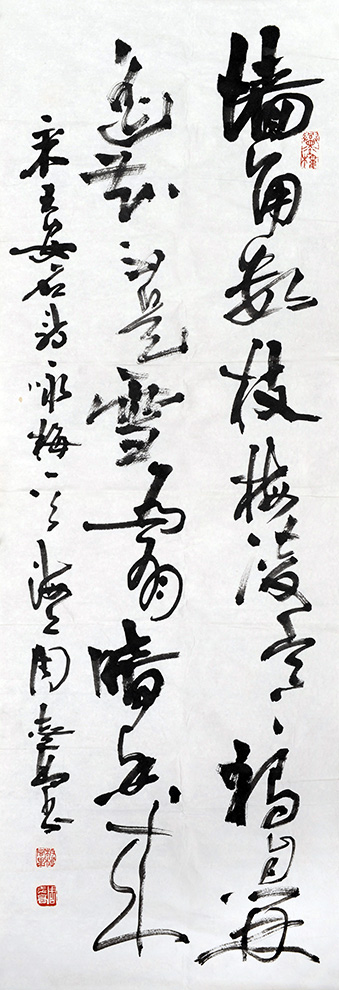 墙角数枝梅凌寒獨自開
遥知不是雪为有暗香来
宋王安石诗咏梅一首海上周书